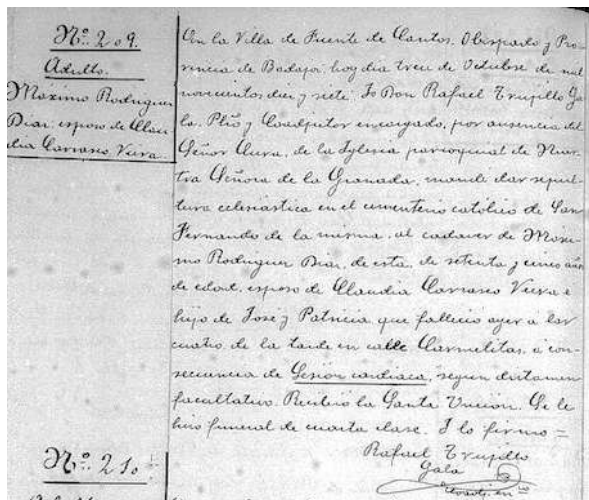 Nº. 209.
Adulto.
Maximo Rodriguez
Diaz, esposo de Clau
dia Carrasco Viera.
En la Villa de Fuente de Cantos, Obispado y Pro
vincia de Badajoz, hoy dia trece de Octubre de mil
novecientos diez y siete. Yo Don Rafael Trujillo Ga
la. Pbro y Coadjutor encargado, por ausencia del
Señor Cura, de la Iglesia parroquial de Nues
tra Señora de la Granada, mandé dar sepul
tura eclesiastica en el cementerio católico de San
Fernando de la misma, al cadaver de Máxi
mo Rodriguez Diaz, de esta, de setenta y cinco años
de edad, esposo de Claudia Carrasco Viera é
hijo de José y Patricia, que falleció ayer á las
cuatro de la tarde en calle Carmelitas, á con
secuencia de Lesion cardiaca, segun dictamen
facultativo. Recibió la Santa Uncion. Se le
hizo funeral de cuarta clase. Y lo firmo=
Rafael Trujillo
Gala
Nº. 210